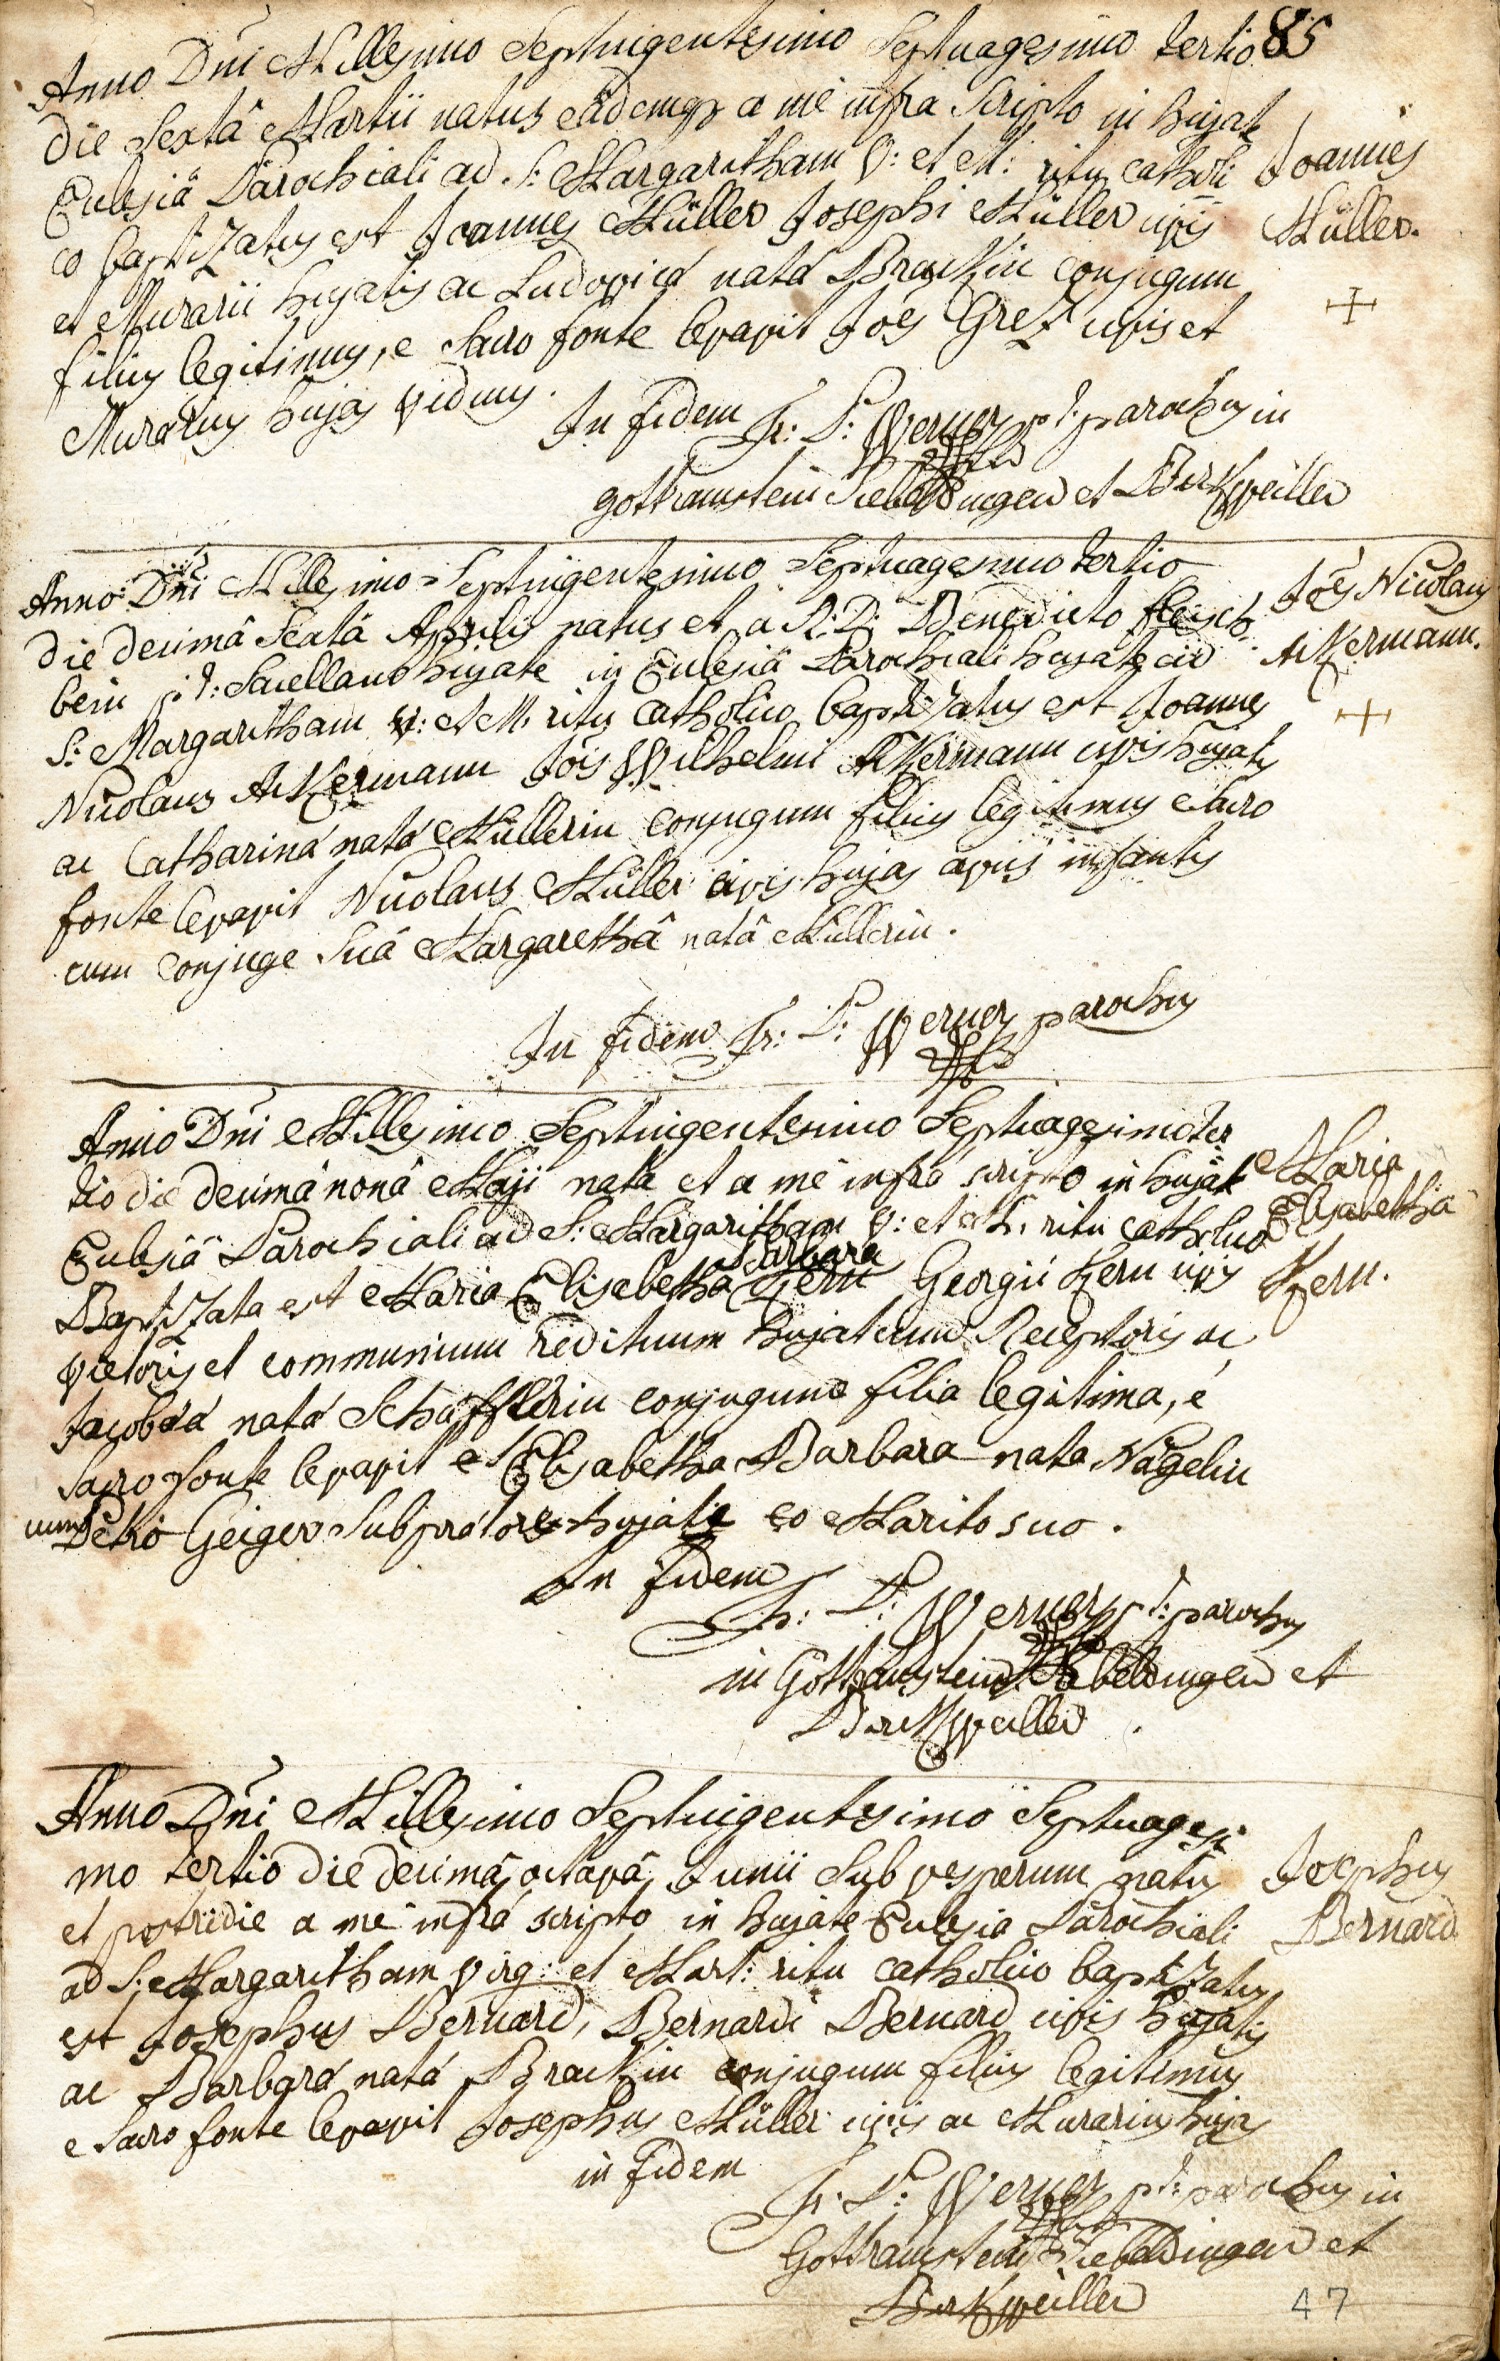 85
Anno Dni Millesimo Septuigentesimo Septuagesimo tertio
die Sextâ Martii natus eâdemq a me infra Scripto in hujate
Ecclesiâ Parochiali ad S: Margaritham V: et M: ritu catholi
co baptizatus est Joannes Müller Josephi Müller civis
et Murarii hujatis ac Ludovicâ natâ Brackin conjugum
filius legitimus, e Sacro fonte levavit Joês Gretz civis et
Murarius hujas viduus.
Joannes
Müller.
In fidem Fr: P: Werner p.t: parochus in
gottramstein Siebeldingen et Birkweiller
Anno Dni Millesimo Septuigentesimo Septuagesimo tertio
die decimâ Sextâ Aprilis natus et a R: D: Benedicto
bein p.t: Sacellano hujate in Ecclesiâ Parochiali hujate ad
S: Margaritham V: et M: ritu Catholico baptizatus est Joannes
Nicolaus Ackermann Jois Wilhelmi Ackermann civis hujatis
ac Catharinâ natâ Müllerin conjugum filius legitimus e Sacro
fonte levavit Nicolaus Müller civis hujas avus infantis
cum conjuge Suâ Margarethâ natâ Müllerin.
Joês Nicolaus
Ackermann.
In fidem Fr: P: Werner parochus
Anno Dni Millesimo Septuigentesimo Septuagesimo ter
tio die decimâ nonâ Maji nata et a me infra scripto in hujate
Ecclesiâ Parochiali ad S: Margaritham V: et M: ritu catholico
Barbara
Baptizata est Maria Elisabetha Kern Georgii Kern civis
vietoris et communium redituum hujatium Receptoris ac
Jacobeâ natâ Schafflerin conjugum filia legitima, e
Sacro fonte levavit Elisabetha Barbara nata Nägelin
cum Petro Geiger Subpraetore hujate eo Marito suo.
Maria
Elisabetha
Kern.
In fidem
Fr: P: Werner p.t: parochus
in Gottramstein Siebeldingen et
Birckweiller
Anno Dni Millesimo Septuigentesimo Septuagesi
mo tertio die decimâ octavâ Junii Sub vesperum natus
et postridie a me infra scripto in hujate Ecclesia Parochiali
ad S: Margaritham Virg: et Mart: ritu catholico baptizatus
est Josephus Bernard, Bernardi Bernard civis hujatis
ac Barbarâ natâ Brackin conjugum filius legitimus
e Sacro fonte levavit Josephus Müller civis ac Murarius hujas
Josephus
Bernard
in fidem
Fr: P: Werner p.t: parochus in
Gottramstein Siebeldingen et
Birkweiller
47